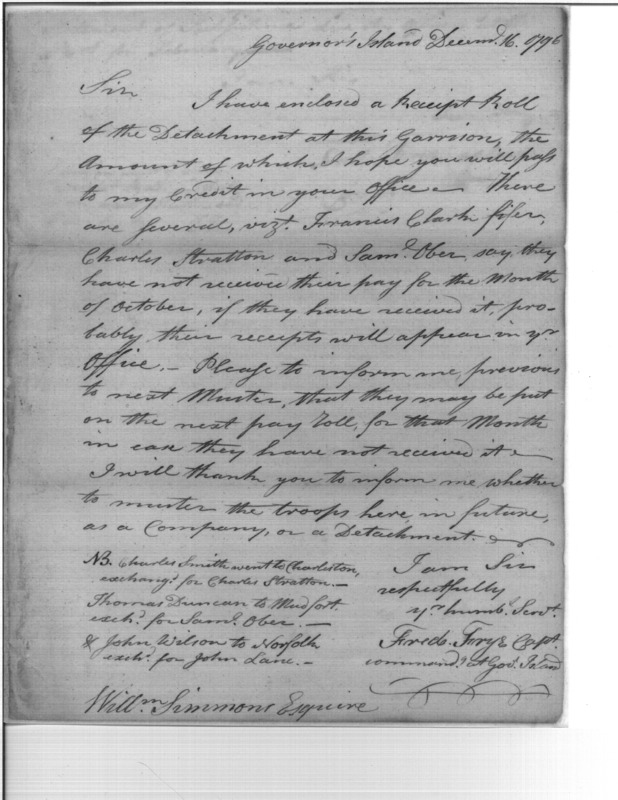 Governor's Island Decemr. 16. 1796
Sir
I have enclosed a Receipt Roll
of the Detachment at this Garrison, the
Amount of which, I hope you will pass
to my Credit in your Office. There
are several, vizt. Francis Clark fifer,
Charles Stratton and Saml. Ober, say they
have not receive their pay for the Month
of October, if they have received it, pro-
bably their receipts will appear in yr
Office. - Please to inform me, previous
to next Muster, that they may be put
on the next pay Roll, for that Month
in case they have not received it -
I will thank you to inform me whether
to muster the troops here in future,
as a Company, or a Detachment.
NB. Charles Smith went to Charleston,
exchangd. for Charles Stratton. -
Thomas Duncan to Mudfort.
exchd. for Saml. Ober. -
& John Wilson to Norfolk
exchd. for John Lane. -
I am Sir
respectfully
yr. humbl. Servt.
Fredk. Frye Capt
command. at Gov. Island
Willm. Simmons Esquire